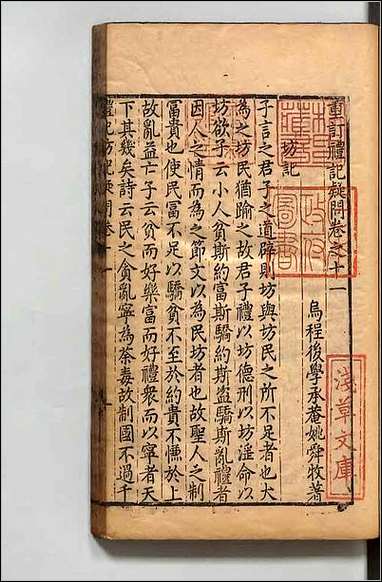 重訂禮記疑問卷之十一
烏程後學承菴姚舜牧著
坊記
子言之君子之道辟則坊與坊民之所不足者也大
為之坊民猶踰之故君子禮以坊德刑以坊淫命以
坊欲子云小人貧斯約富斯驕約斯盜驕斯亂禮者
因人之情而為之節文以為民坊者也故聖人之制
富貴也使民富不足以驕貧不至於約貴不慊於上
故亂益亡子云貧而好樂富而好禮眾而以寧者天
下其幾矣詩云民之貪亂寧為荼毒故制國不過千
禮記坊記疑問卷十一
淺草文庫
圖書